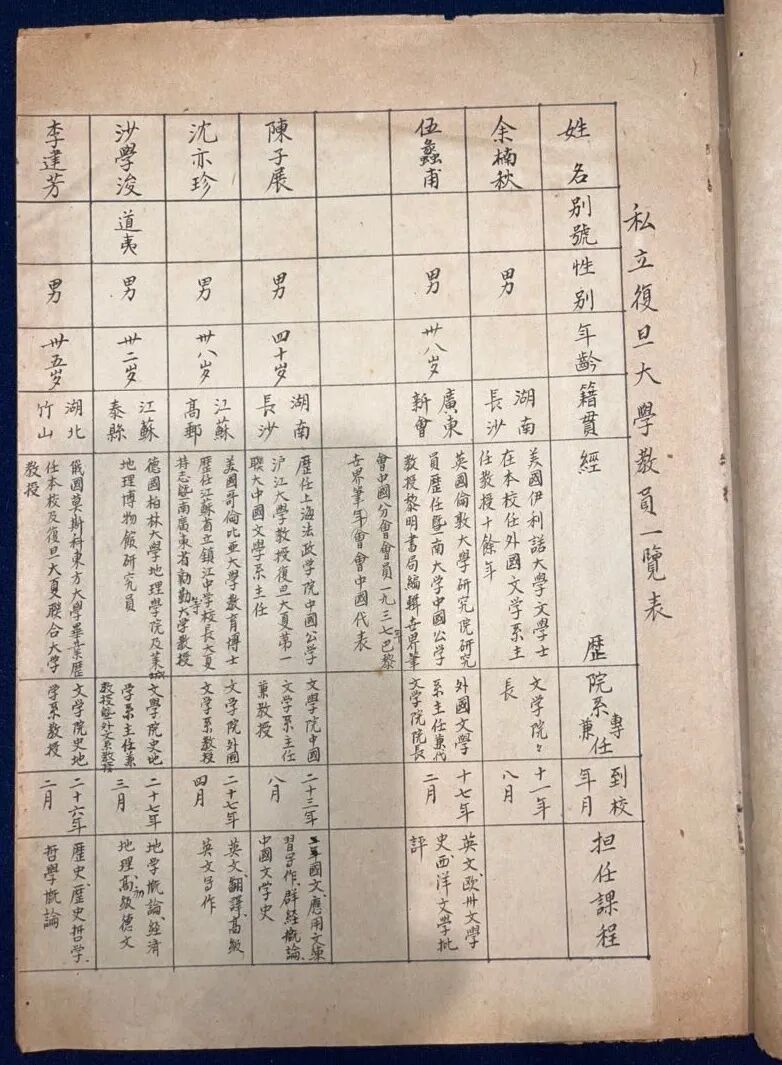 私立復旦大學教員一覽表
姓名
别號
性别
年齡
籍貫
經歷
院系專兼任
到校年月
担任課程
余楠秋
男
湖南
長沙
美國伊利諾大學文學士
在本校任外國文学系主
任教授十餘年
文学院々
長
十一年
八月
伍蠡甫
男
卅八岁
廣東
新會
英國倫敦大學研究院研究
員歷任暨南大学中國公学
教授黎明書局編輯世界筆
會中國分會會員一九三七年巴黎
世界筆會年會中國代表
外國文學
系主任兼代
文学院院長
十七年
二月
英文、欧卅文學
史、西洋文学批
評
陳子展
男
四十岁
湖南
長沙
歷任上海法政学院中國公学
沪江大學教授復旦大夏第一
聯大中國文學系主任
文學院中國
文学系主任
兼教授
二十三年
八月
國文、應用文練
習寫作、群经概論、
中國文学史
沈亦珍
男
卅八岁
江蘇
高郵
美國哥倫比亚大學教育博士
歷任江蘇省立鎮江中学校長大夏
持志暨南廣東省勷勤大学等教授
文学院外國
文学系教授
二十七年
四月
英文、翻譯、高級
英文写作
沙學浚
道夷
男
卅二岁
江蘇
泰縣
德國柏林大學地理學院及萊城
地理博物館研究員
文學院史地
学系主任兼
教授兼外文系教授
二十七年
三月
地学概論、經濟
地理、初高級德文
李建芳
男
卅五岁
湖北
竹山
俄國莫斯科東方大學畢業歷
任本校及復旦大夏聯合大学
教授
文学院史地
学系教授
二十六年
二月
歷史、歷史哲学、
哲學概論